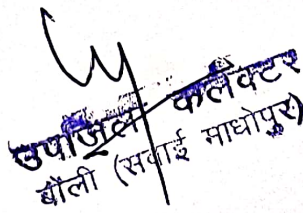 उपजिला कलेक्टर
बौंली (सवाई माधोपुर)